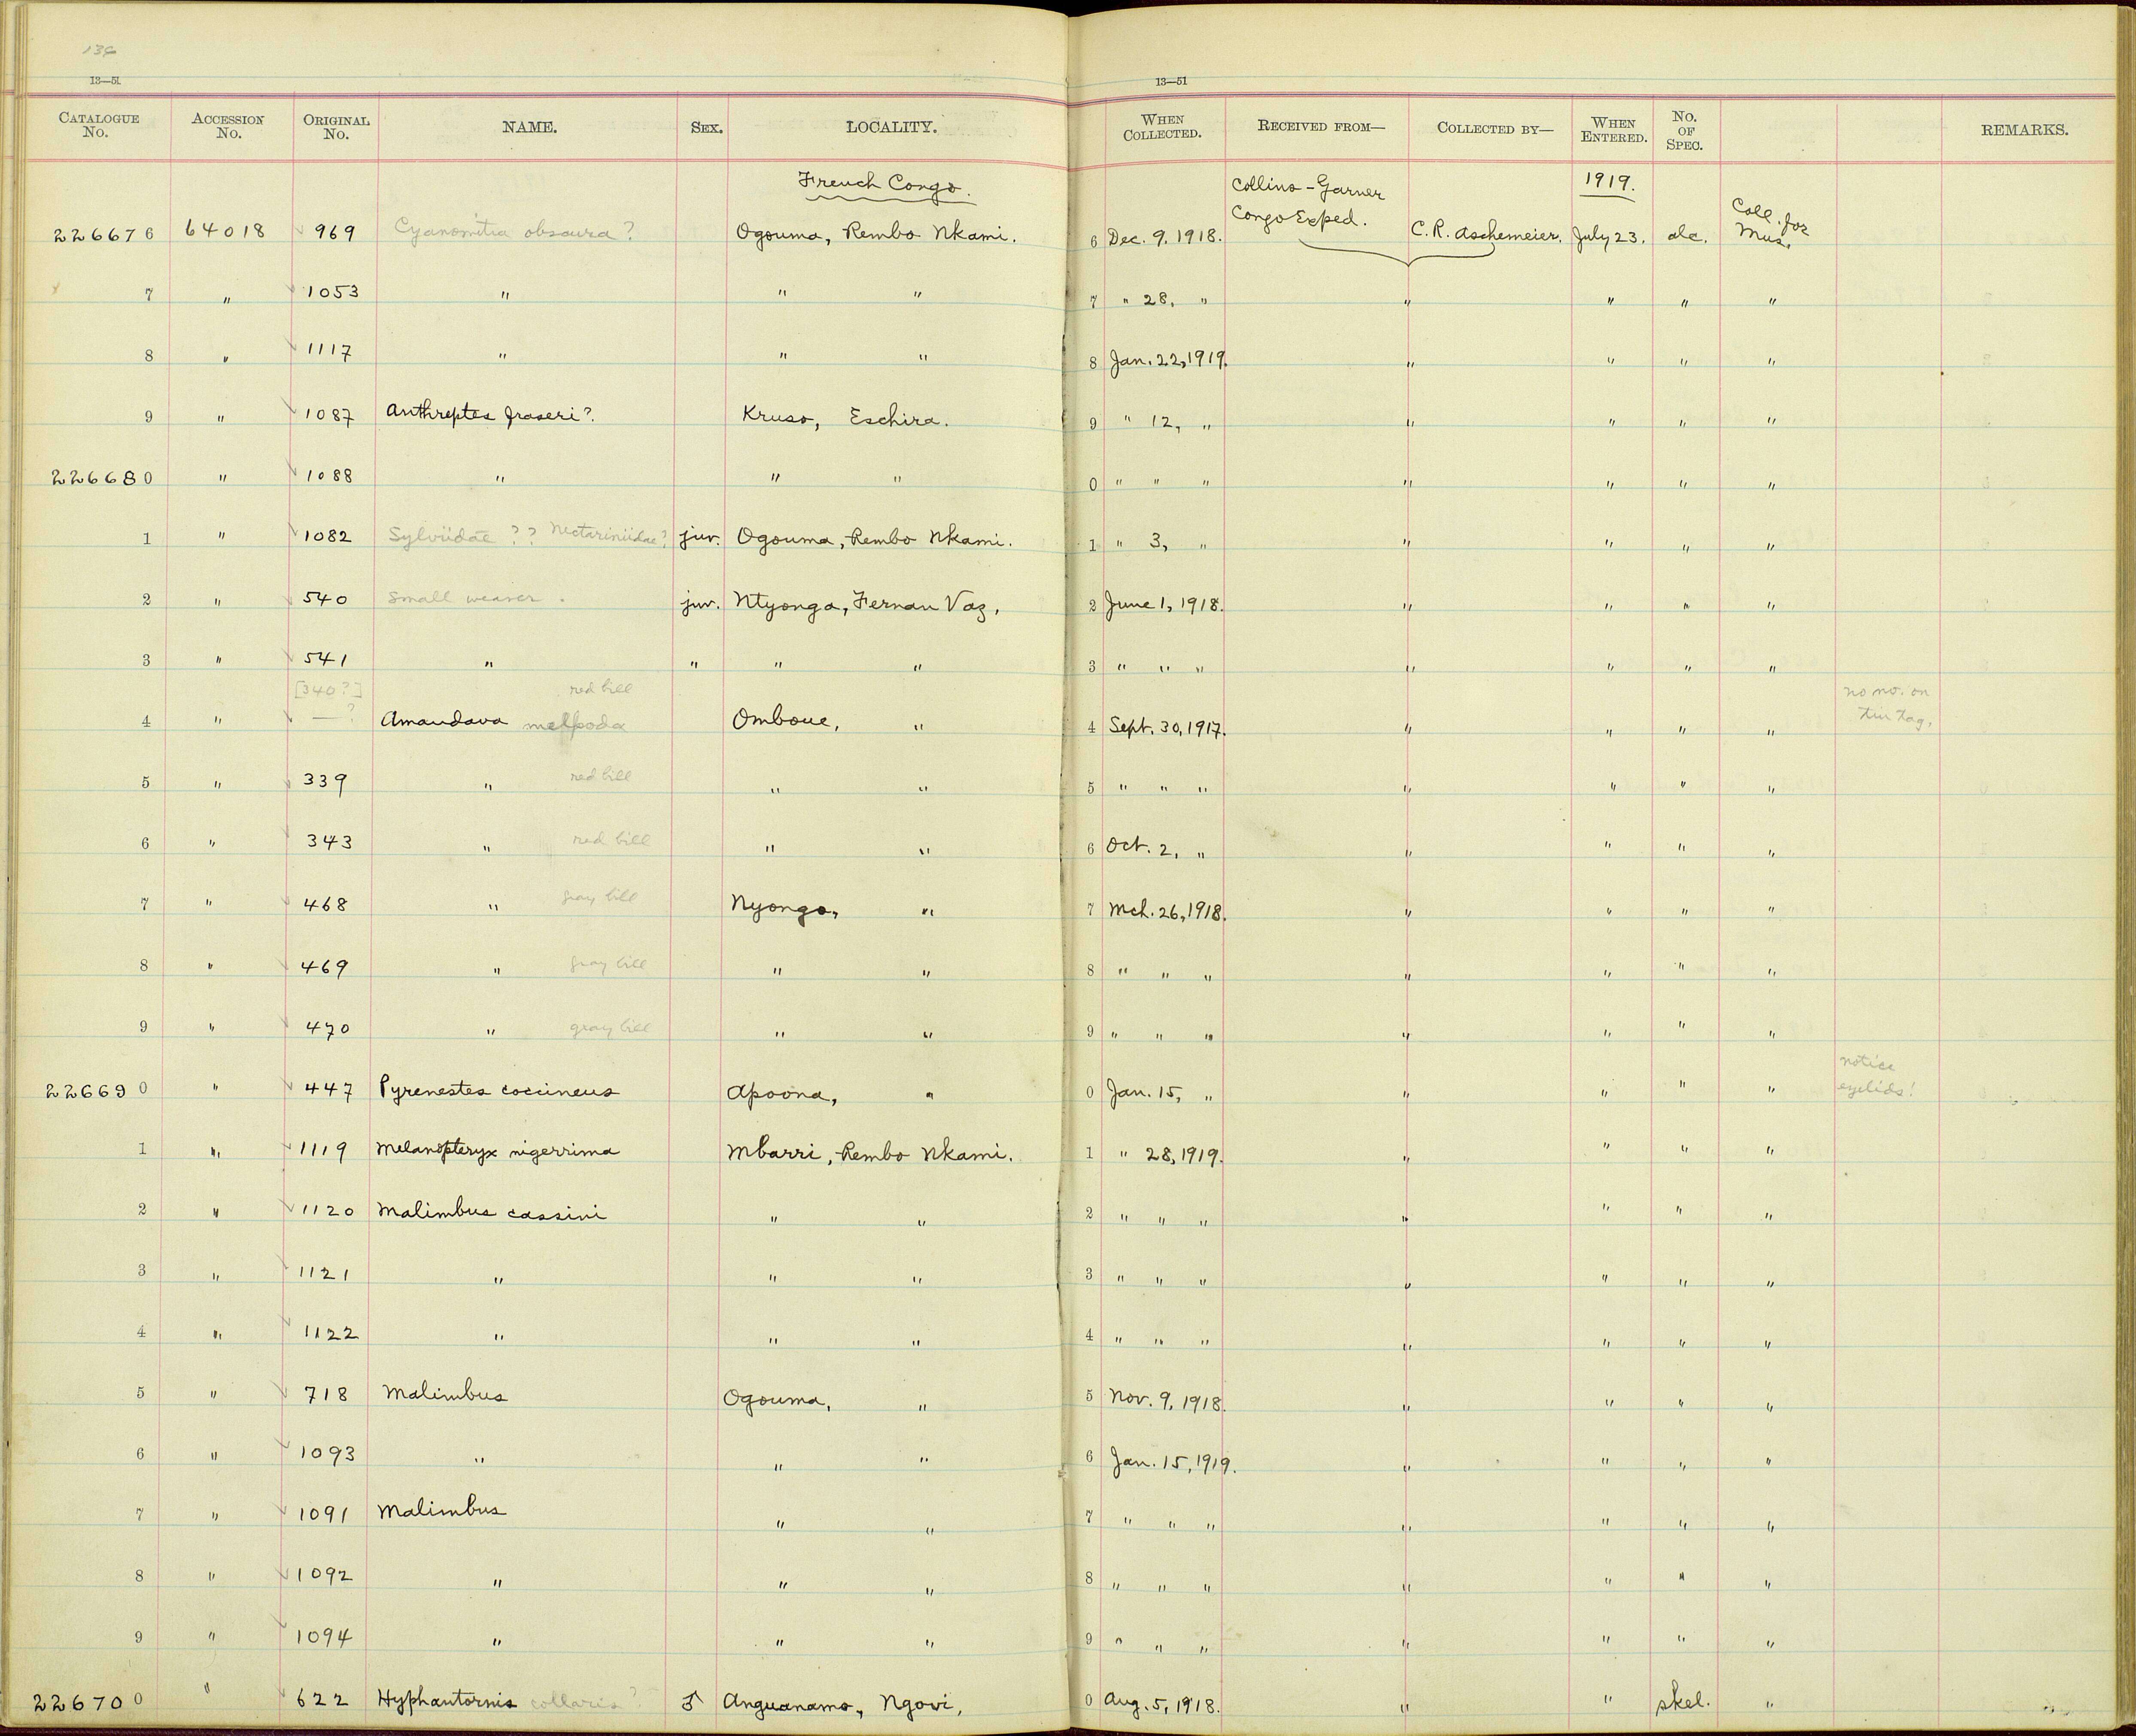 136
13—51
13—51
CATALOGUE No. ACCESSION No. ORIGINAL No. NAME. SEX. LOCALITY. WHEN COLLECTED. RECEIVED FROM— COLLECTED BY— WHEN ENTERED. No. OF SPEC. REMARKS.
French Congo. Collins-Garner Congo Exped. 1919.
226676 64018 969 Cyanomitra obscura? Ogouma, Rembo Nkami. 6 Dec. 9. 1918. C. R. Aschemeier. July 23. alc. Coll. for Mus.
7 " 1053 " " " 7 " 28, " " " " "
8 " 1117 " " " 8 Jan. 22, 1919. " " " "
9 " 1087 Anthreptes fraseri? Kruso, Eschira. 9 " 12, " " " " "
226680 " 1088 " " " 0 " " " " " " "
1 " 1082 Sylviidae ?? Nectariniidae? juv. Ogouma, Rembo Nkami. 1 " 3, " " " " "
2 " 540 Small weaver. juv. Ntyonga, Fernan Vaz, 2 June 1, 1918. " " " "
3 " 541 " " " " 3 " " " " " " "
[340?] red bill no no. on
4 " —? Amandava melpoda Omboue, " 4 Sept. 30, 1917. " " " " tin tag.
5 " 339 " red bill " " 5 " " " " " " "
6 " 343 " red bill " " 6 Oct. 2, " " " " "
7 " 468 " gray bill Nyongo, " 7 Mch. 26, 1918. " " " "
8 " 469 " gray bill " " 8 " " " " " " "
9 " 470 " gray bill " " 9 " " " " " " "
226690 " 447 Pyrenestes coccineus Apoona, " 0 Jan. 15, " " " " " notice eyelids!
1 " 1119 Melanopteryx nigerrima Mbarri, Rembo Nkami. 1 " 28, 1919. " " " "
2 " 1120 Malimbus cassini " " 2 " " " " " " "
3 " 1121 " " " 3 " " " " " " "
4 " 1122 " " " 4 " " " " " " "
5 " 718 Malimbus Ogouma, " 5 Nov. 9, 1918. " " " "
6 " 1093 " " " 6 Jan. 15, 1919. " " " "
7 " 1091 Malimbus " " 7 " " " " " " "
8 " 1092 " " " 8 " " " " " " "
9 " 1094 " " " 9 " " " " " " "
226700 " 622 Hyphantornis collaris? ♂ Anguanamo, Ngovi, 0 Aug. 5, 1918. " " skel. "